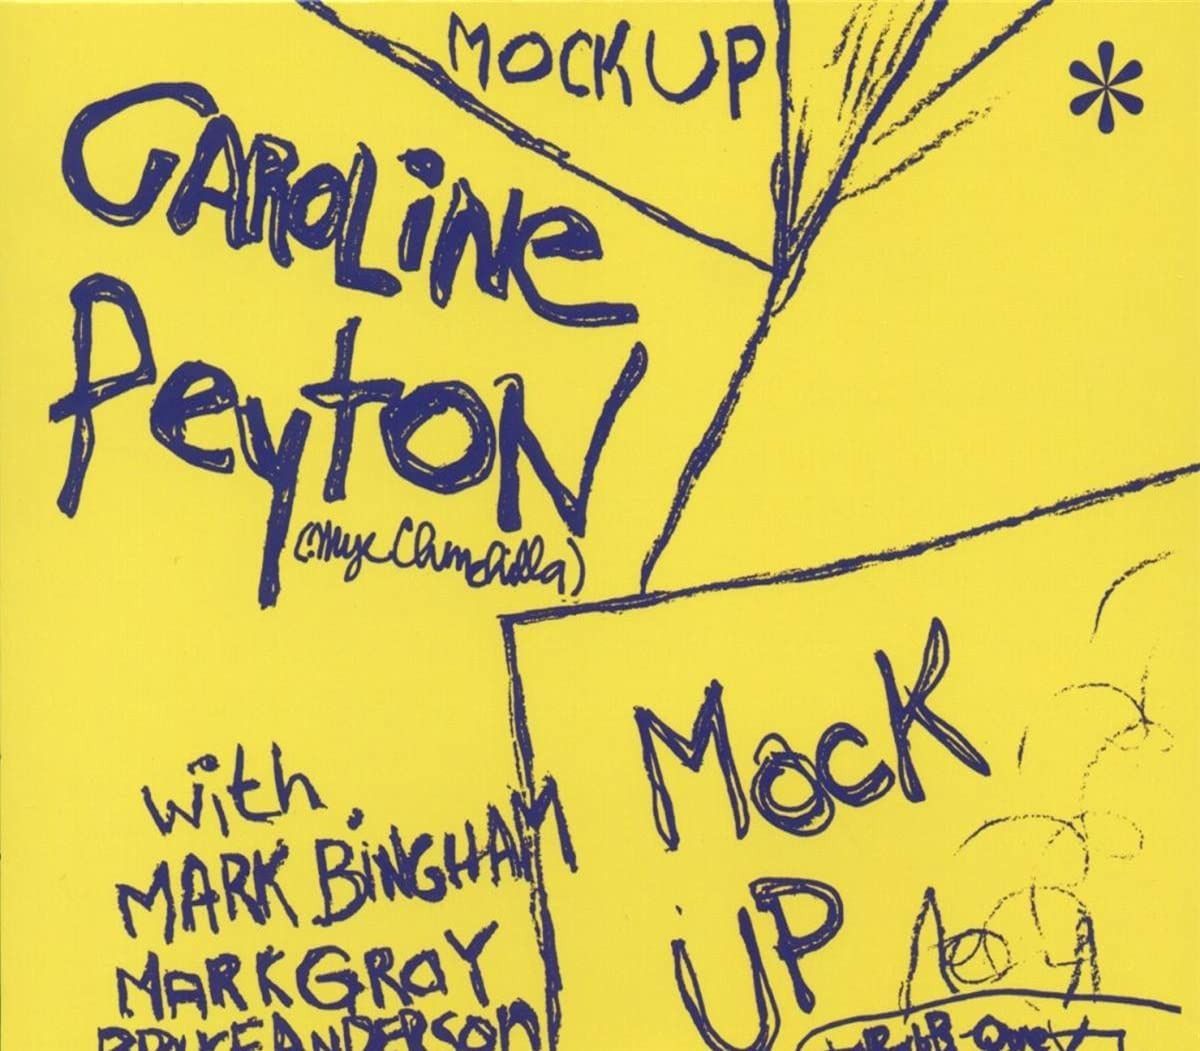 MOCK UP
*
CAROLINE
PEYTON
(Myx Chinchilla)
with
MARK BINGHAM
MARK GRAY
BRUCE ANDERSON
MOCK
UP